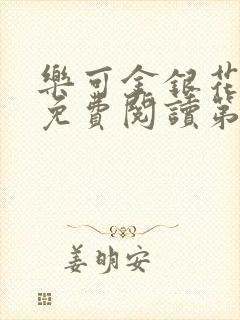 樂可金銀花
免費閱讀第
姜明安